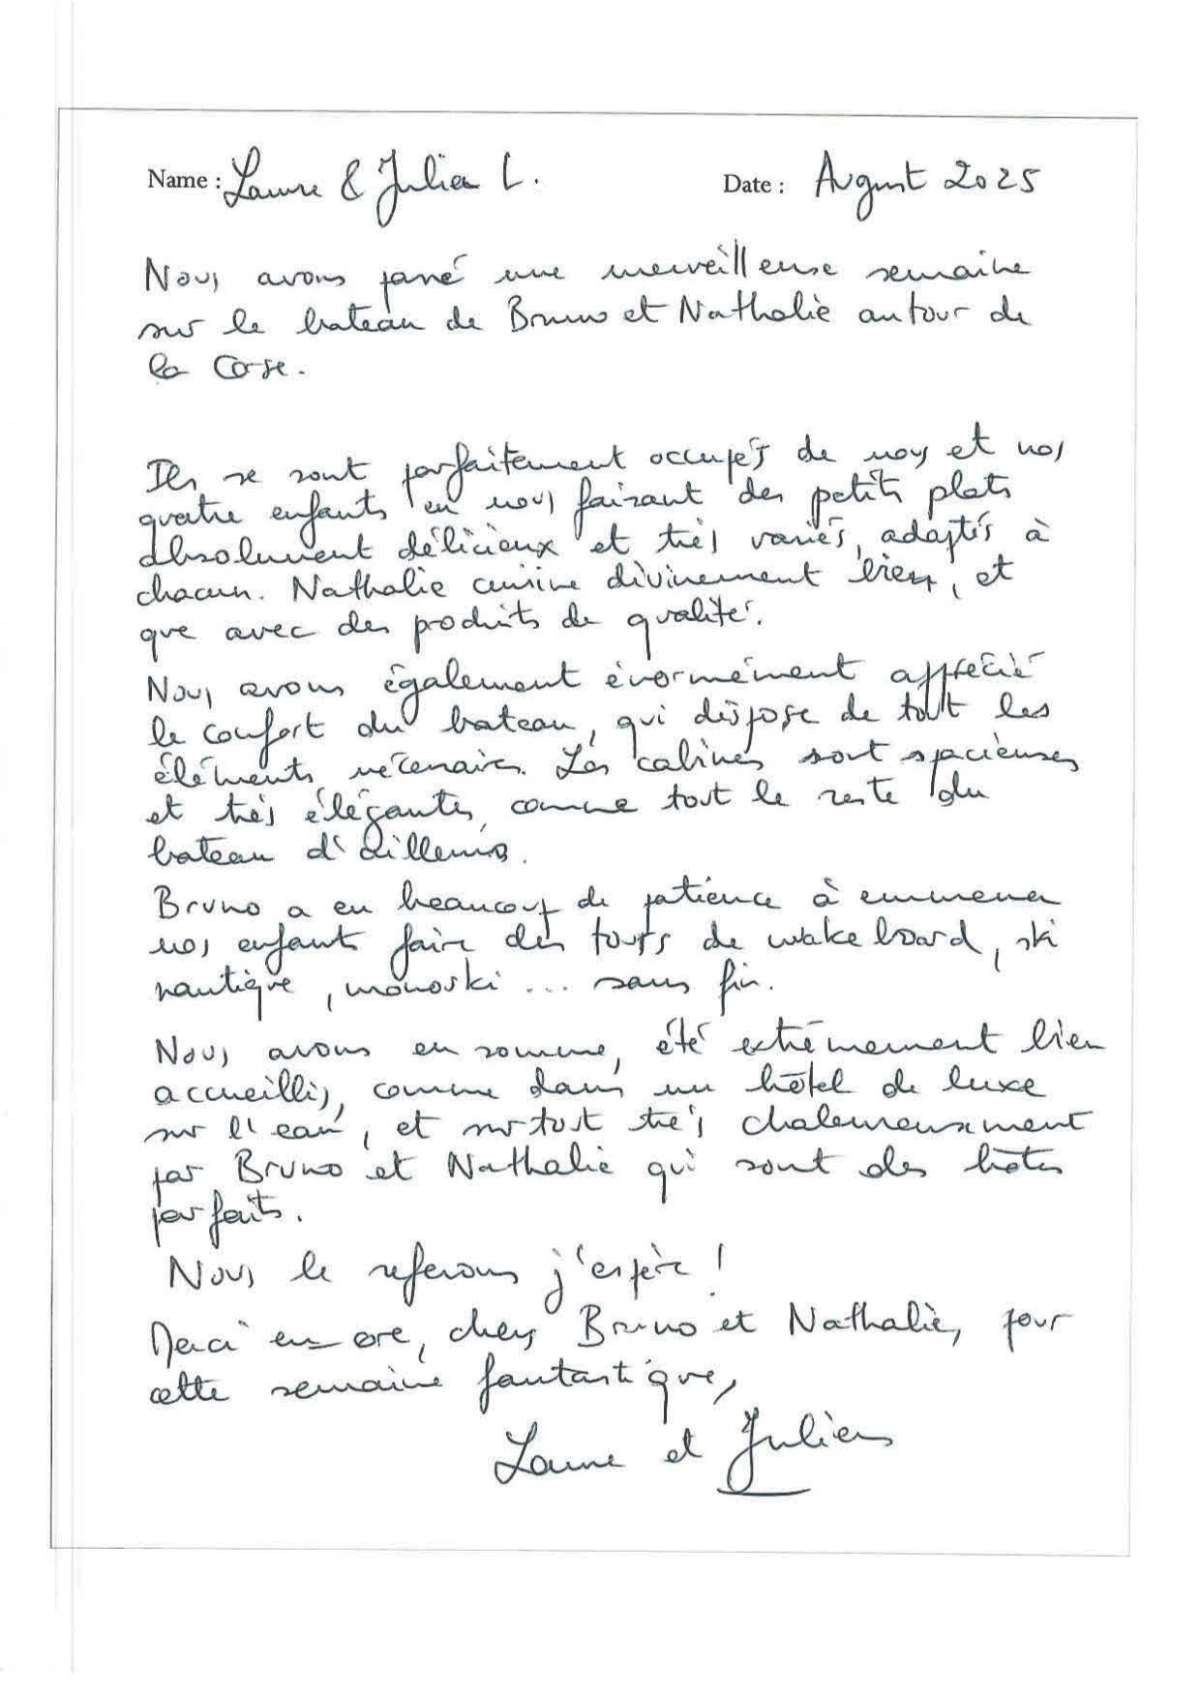 Name : Laure & Julien L. Date : August 2025
Nous avons passé une merveilleuse semaine
sur le bateau de Bruno et Nathalie autour de
la Corse.
Ils se sont parfaitement occupés de nous et nos
quatre enfants en nous faisant des petits plats
absolument délicieux et très variés, adaptés à
chacun. Nathalie cuisine divinement bien, et
que avec des produits de qualité.
Nous avons également énormément apprécié
le confort du bateau, qui dispose de tout les
éléments nécessaires. Les cabines sont spacieuses
et très élégantes, comme tout le reste du
bateau d'ailleurs.
Bruno a eu beaucoup de patience à emmener
nos enfants faire des tours de wakeboard, ski
nautique, monoski ... sans fin.
Nous avons en somme, été extrêmement bien
accueillis, comme dans un hôtel de luxe
sur l'eau, et surtout très chaleureusement
par Bruno et Nathalie qui sont des hôtes
parfaits.
Nous le referons j'espère !
Merci encore, chers Bruno et Nathalie, pour
cette semaine fantastique,
Laure et Julien